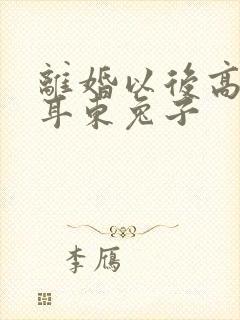 離婚以後高
耳東兔子
李雁